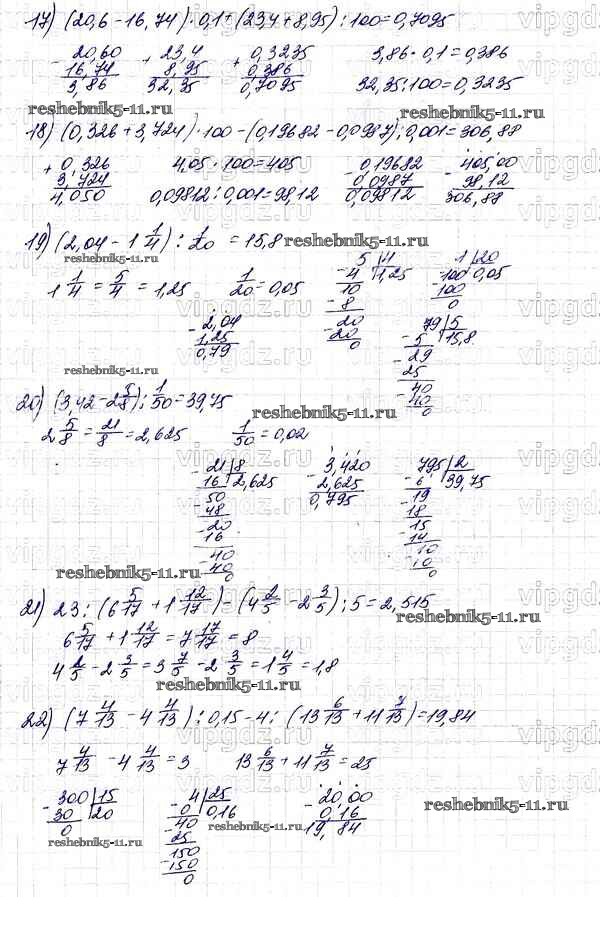 17) (20,6 - 16,74) · 0,1 + (23,4 + 8,95) : 100 = 0,7095
- 20,60 + 23,4 + 0,3235 3,86 · 0,1 = 0,386
16,74 8,95 0,386 32,35 : 100 = 0,3235
3,86 32,35 0,7095
reshebnik5-11.ru reshebnik5-11.ru
18) (0,326 + 3,724) · 100 - (0,19682 - 0,0987) : 0,001 = 306,88
+ 0,326 4,05 · 100 = 405 - 0,19682 - 405,00
3,724 0,0987 98,12
4,050 0,09812 : 0,001 = 98,12 0,09812 306,88
19) (2,04 - 1 1/4) : 1/20 = 15,8
reshebnik5-11.ru
reshebnik5-11.ru
1 1/4 = 5/4 = 1,25 1/20 = 0,05
- 5 | 4 1 | 20
4 1,25 - 100 0,05
- 10 100
8 0
- 20
20
0
- 2,04
1,25
0,79
79 | 5
- 5 15,8
- 29
25
- 40
40
0
reshebnik5-11.ru
20) (3,42 - 2 5/8) : 1/50 = 39,75
reshebnik5-11.ru
2 5/8 = 21/8 = 2,625 1/50 = 0,02
- 21 | 8 - 3,420 795 | 2
16 2,625 2,625 - 6 39,75
- 50 0,795 - 19
48 18
- 20 - 15
16 14
- 40 - 10
40 10
0 0
reshebnik5-11.ru
21) 23 : (6 5/17 + 1 12/17) - (4 2/5 - 2 3/5) : 5 = 2,515
reshebnik5-11.ru
6 5/17 + 1 12/17 = 7 17/17 = 8
4 2/5 - 2 3/5 = 3 7/5 - 2 3/5 = 1 4/5 = 1,8
reshebnik5-11.ru
22) (7 4/13 - 4 4/13) : 0,15 - 4 : (13 6/13 + 11 7/13) = 19,84
7 4/13 - 4 4/13 = 3 13 6/13 + 11 7/13 = 25
- 300 | 15 - 4 | 25 - 20,00
30 20 0 0,16 0,16
0 - 40 19,84
25
- 150
150
0
reshebnik5-11.ru
reshebnik5-11.ru
reshebnik5-11.ru
vipgdz.ru